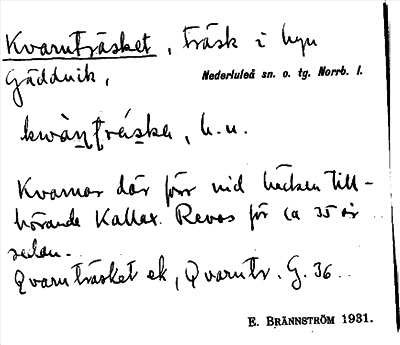 Kvarnträsket, träsk i byn
Gäddvik, Nederluleå sn. o. tg. Norrb. l.
kwàṇtráska, b.u.
Kvarnar där förr vid bäcken till-
hörande Kallax. Revos för ca 35 år
sedan.
Qvarnträsket ek, Qvarntr. G. 36.
E. BRÄNNSTRÖM 1931.